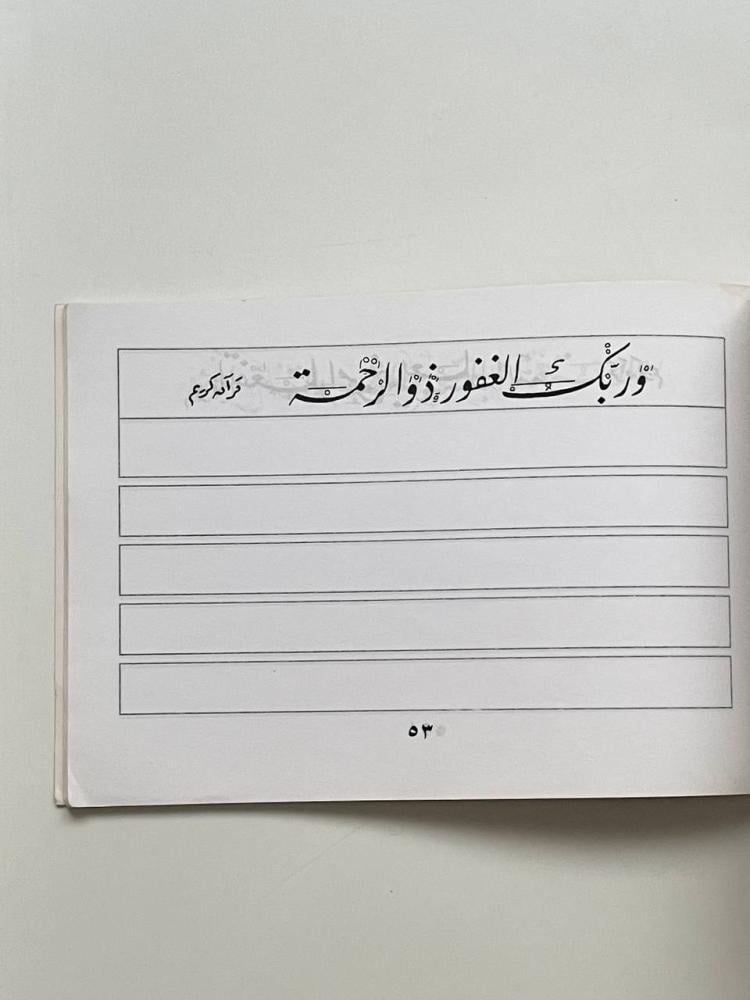 وربك الغفور ذو الرحمة قرآن كريم
٥٣